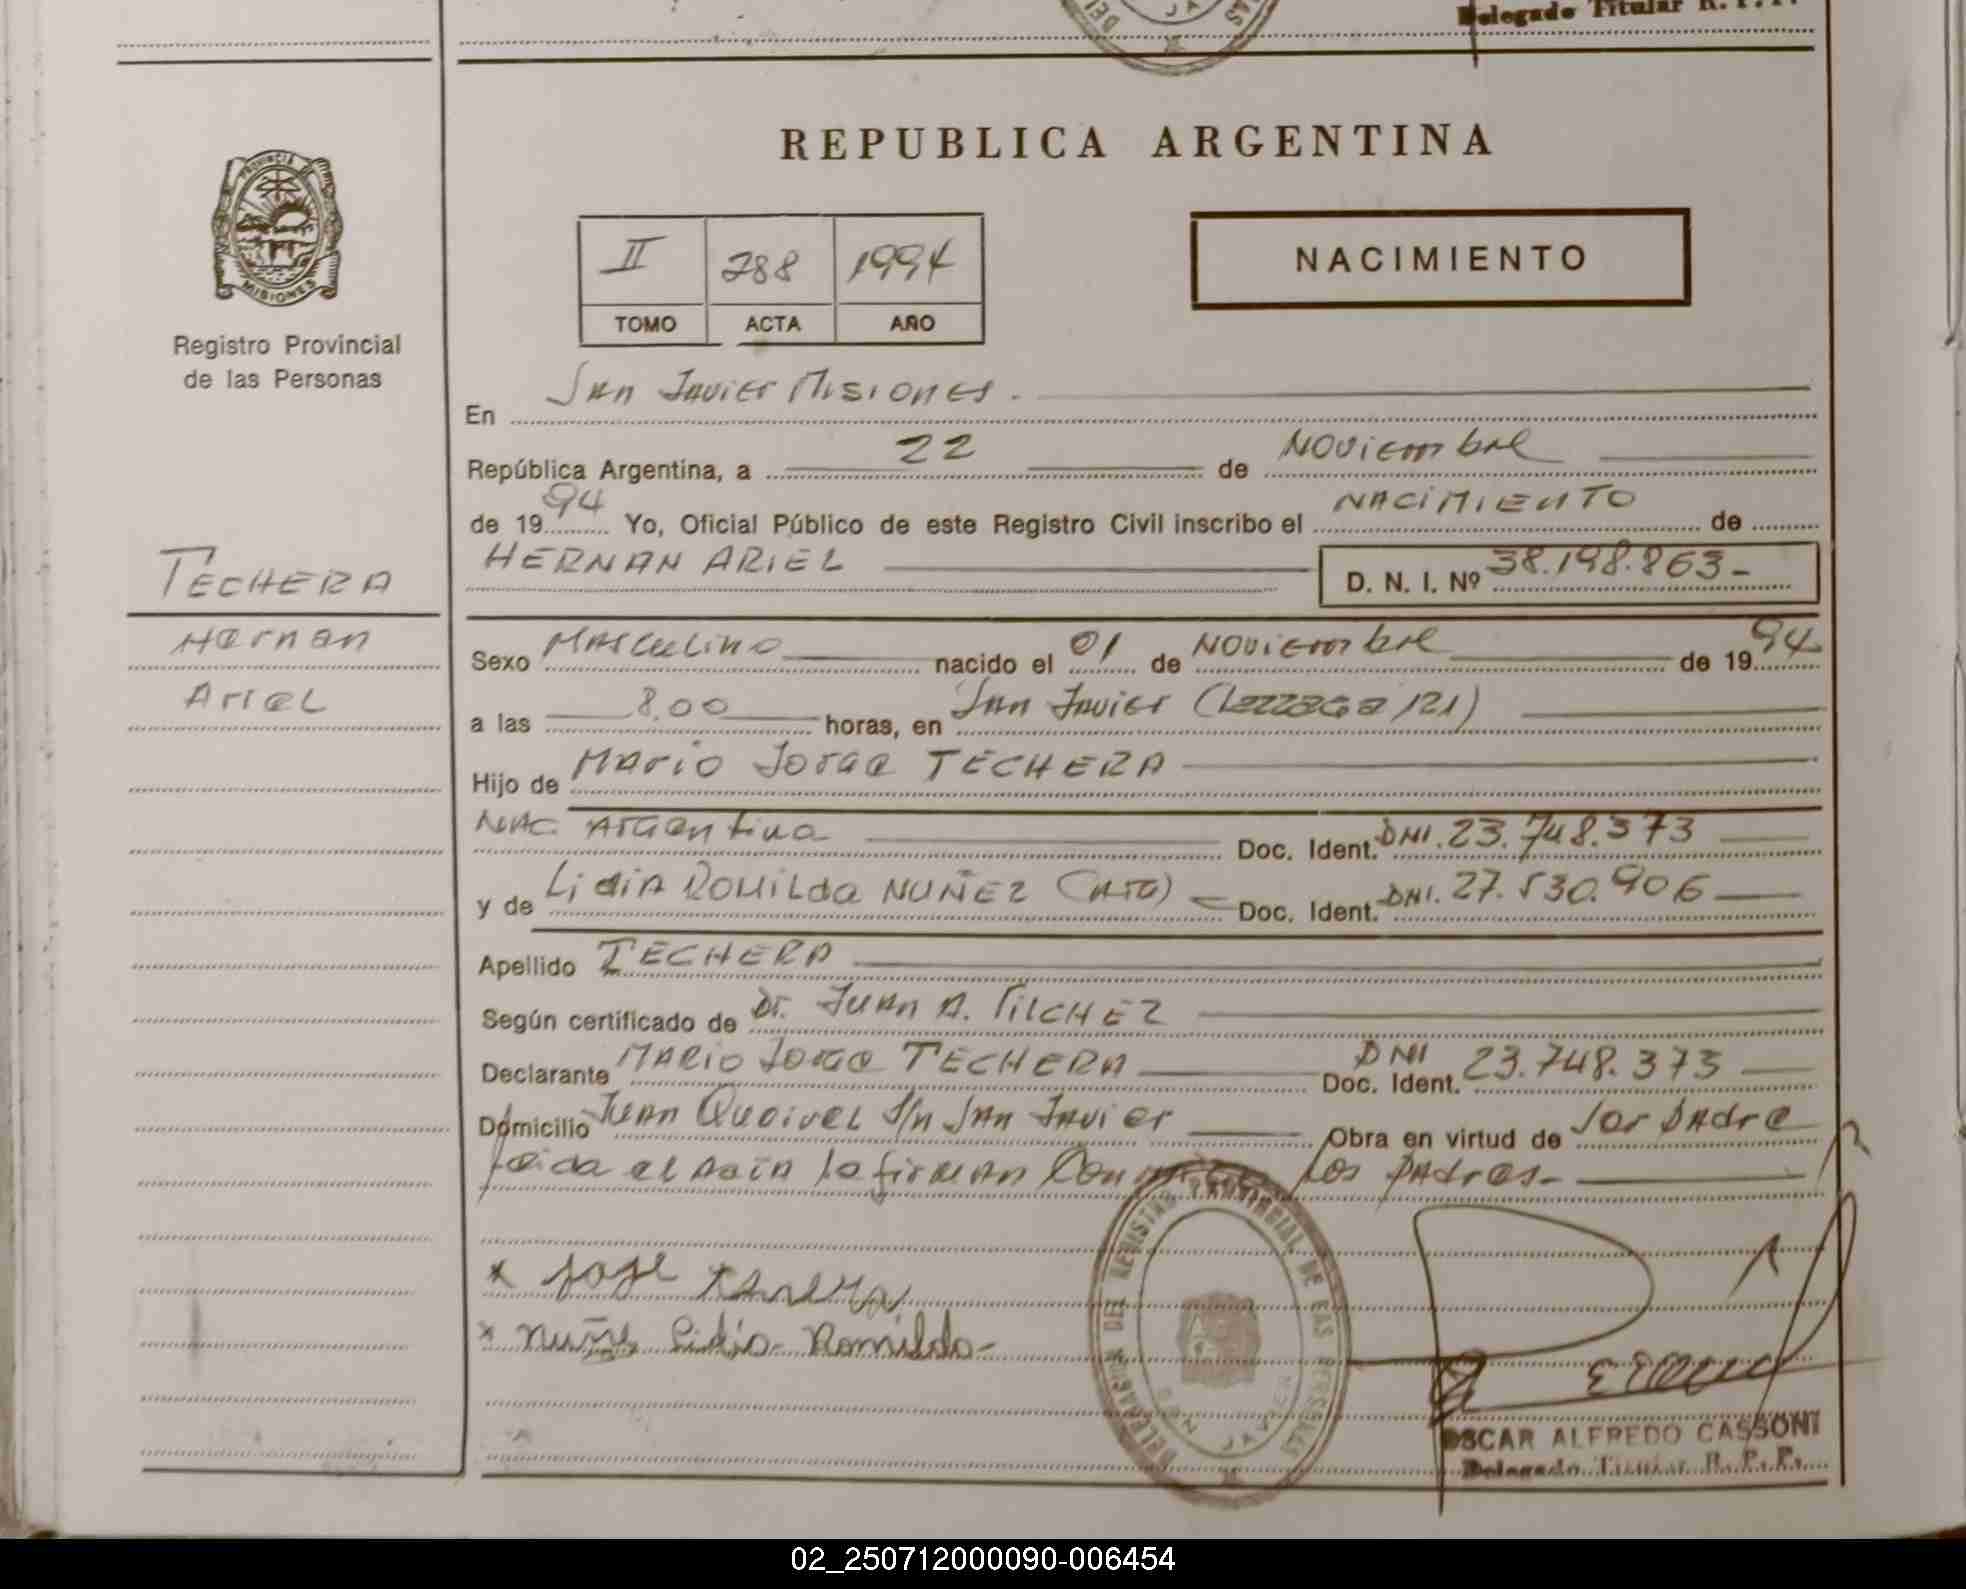 Delegado Titular R. P. P.
REPUBLICA ARGENTINA
PROVINCIA DE
MISIONES
Registro Provincial
de las Personas
II 288 1994
TOMO ACTA AÑO
NACIMIENTO
En San Javier Misiones.
República Argentina, a 22 de Noviembre
de 1994 Yo, Oficial Público de este Registro Civil inscribo el NACIMIENTO de
HERNAN ARIEL D. N. I. Nº 38.198.863-
TECHERA
Hernan
Ariel
Sexo Masculino nacido el 01 de Noviembre de 1994
a las 8.00 horas, en San Javier ( 121)
Hijo de Mario Jorge TECHERA
NAC. Argentina Doc. Ident. DNI. 23.748.373
y de Lidia ROMILda NUÑEZ Doc. Ident. DNI. 27.530.906
Apellido TECHERA
Según certificado de Dr. Juan A. PILCHEZ
Declarante MARIO Jorge TECHERA Doc. Ident. DNI 23.748.373
Domicilio Juan s/n San Javier Obra en virtud de ser Padre
Leida el acta la firman Conmigo los Padres.-
x Jose Techera
x Nuñez Lidia Romilda-
DELEGACION DEL REGISTRO PROVINCIAL DE LAS PERSONAS
SAN JAVIER
OSCAR ALFREDO CASSONI
Delegado Titular R. P. P.
02_250712000090-006454